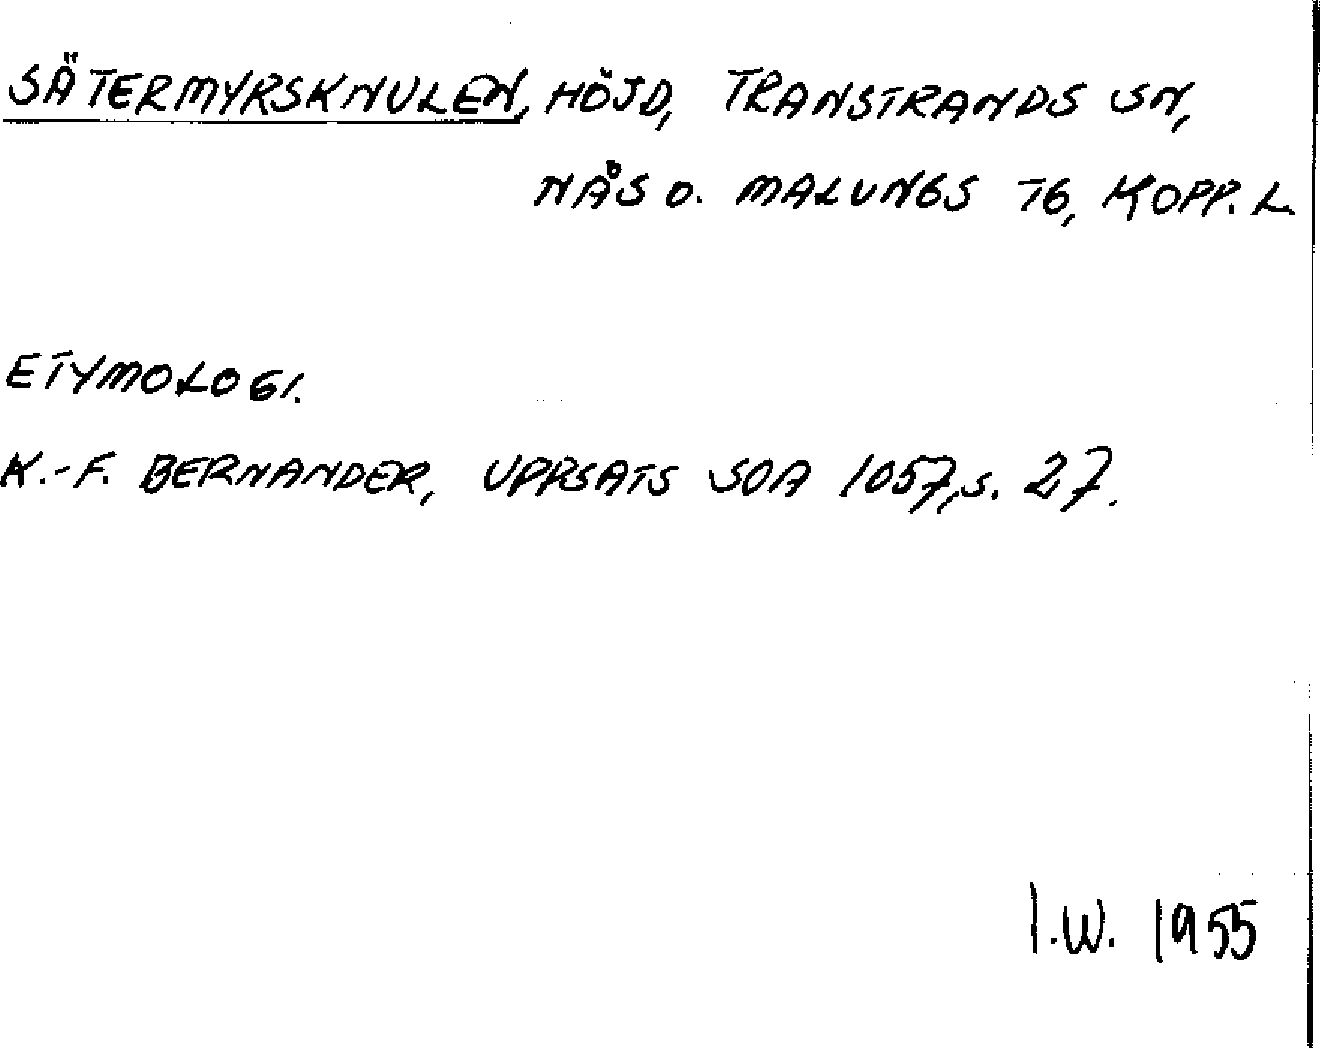 SÄTERMYRSKNULEN, HÖJD, TRANSTRANDS SN,
NÅS O. MALUNGS TG, KOPP. L.
ETYMOLOGI.
K.-F. BERNANDER, UPPSATS SOA 1057, S. 27.
I.W. 1955